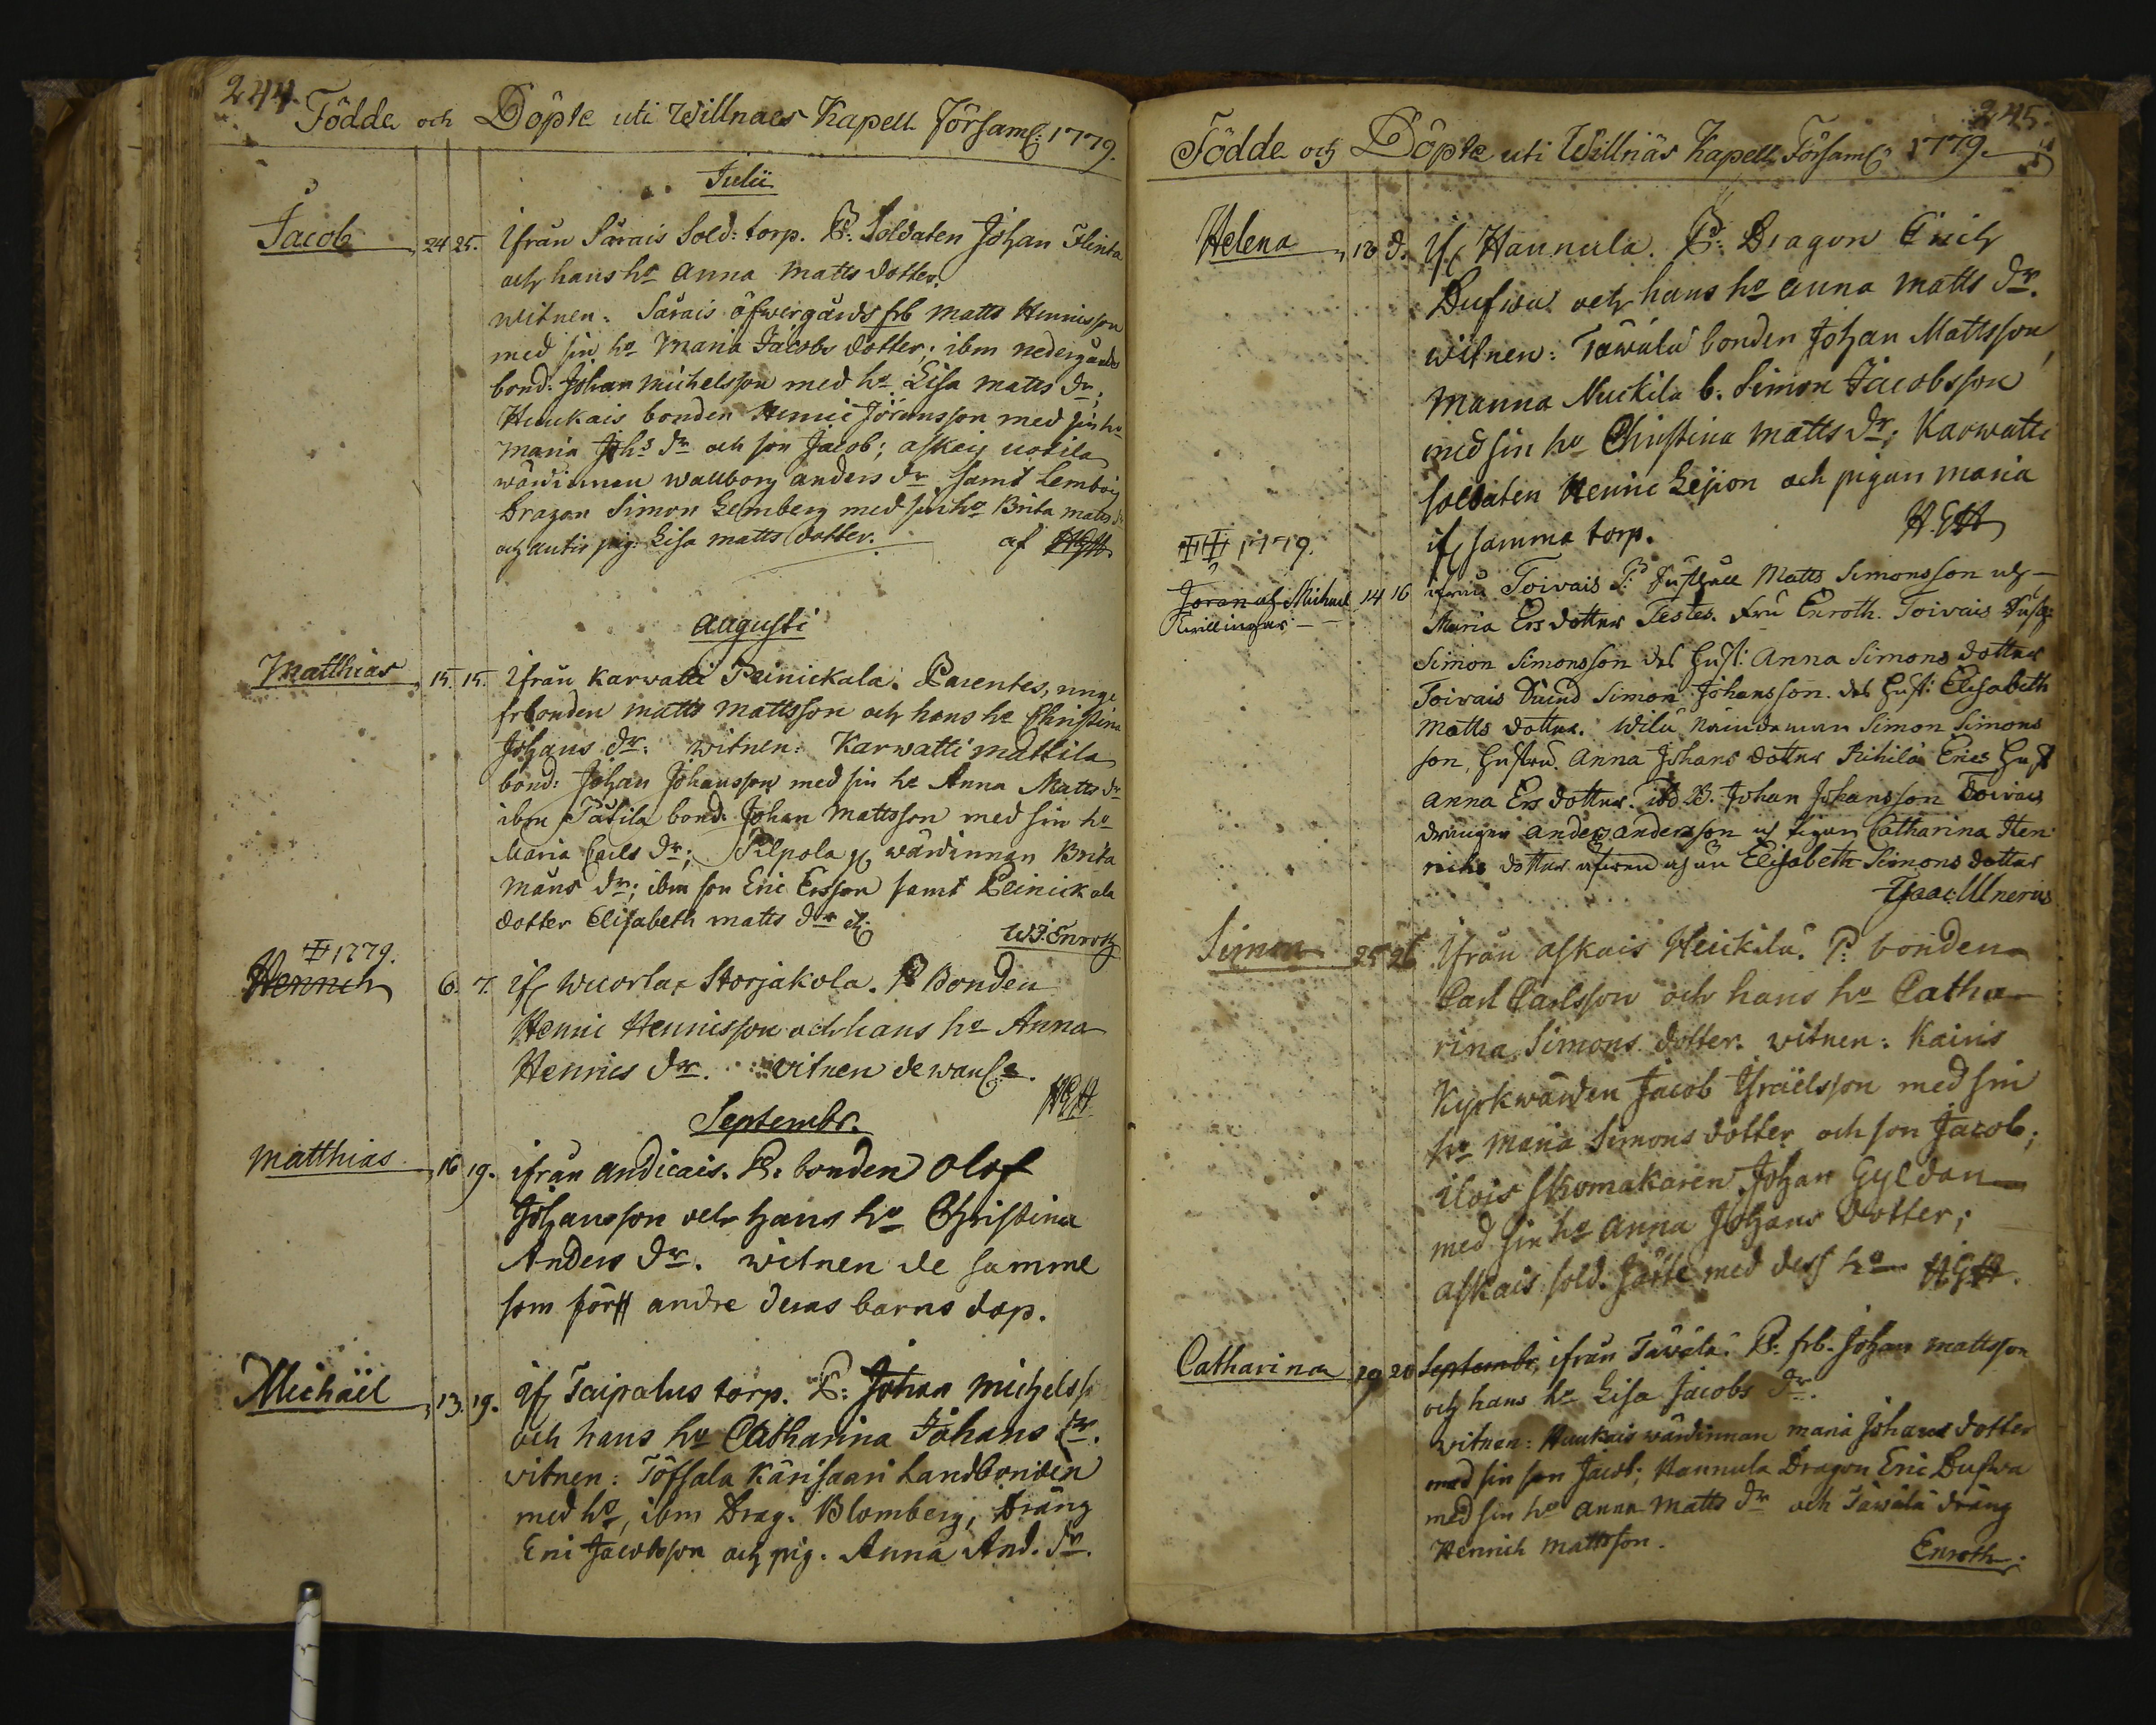 244.
Födde och Döpte uti Willnaes Kapell Församl: 1779.
Julii
Jacob 24 25. Ifrån Särais Sold: torp. P: Soldaten Johan Flinta
och hans ho Anna Matts dotter.
witnen: Särais öfwergårds frb Matts Henrisson
med sin ho Maria Jacobs dotter; ibm nedergårds
bond: Johan Michelsson med ho Lisa Matts dr;
Huukais bonden Henric Jöransson med sin ho
Maria Johs dr och son Jacob; askais uotila
wärdinnan wallborg anders dr samt Lembois
Dragon Simon Lemberg med sin ho Brita Matts dr
och pig: Lisa matts dotter. af HGH
Augusti
Matthias 15. 15. Ifrån Karvatti Peinickala. Parentes, unge
frbonden Matts Mattsson och hans ho Christina
Johans dr: witnen: Karwatti Mattila
bond: Johan Johansson med sin ho Anna Matts dr
ibm Tätilä bond: Johan Mattsson med sin ho
Maria Carls dr; Pilpola wärdinnan Brita
Måns dr; ibm son Eric Ersson samt Peinickala
dotter Elisabeth matts dr
W J. Enroth
1779.
Henrich 6. 7. if Wuorlax Storjakola. P Bonden
Henric Henrisson och hans ho Anna
Henrics dr. witnen de wanl:e.
HGH
Septembr.
Matthias 16 19. ifrån andicais. P: bonden Olof
Johansson och hans ho Christina
Anders dr. witnen de samme
som för andre deras barns dop.
Michaël 13. 19. if Taipalus torp. P: Johan Michelss
och hans ho Catharina Johans dr.
witnen: Töfsala Kärisaari Landbonden
med ho, ibm Drag. Blomberg, dräng
Eric Jacobsson och pig. Anna And. dr.
245.
Födde och Döpte uti Willnäs Kapell Församl 1779.
Helena 18 d. if Hannula. P: Dragon Erich
Dufwa och hans ho Anna Matts dr.
witnen: Täwälä bonden Johan Mattsson,
Manna Nuckila b. Simon Jacobsson
med sin ho Christina Matts dr; Karwatti
soldaten Henric Lejion och pigan Maria
if samma torp. HGH
1779.
Joran och Michael 14 16 ifrån Toivais P: Matts Simonsson och
Twillingar Maria Ers dotter Testes. Fru Enroth. Toivais
Simon Simonsson des Hust: Anna Simons dotter
Toivais Simon Johansson. des Hust: Elisabeth
Matts dotter. Nämdeman Simon Simons
son, Hustru Anna Johans dotter Erics Hust
Anna Ers dotter. B. Johan Johansson Toivais
drängen Anders Andersson och pigan Catharina Hen
richs dotter Elisabeth Simons dotter
Isaac Unerus
Simon 25 26 Ifrån askais Heickilä. P: bonden
Carl Carlsson och hans ho Catha
rina Simons dotter. witnen: Kairis
Kyrkwärden Jacob Israëlsson med sin
ho Maria Simons dotter och son Jacob;
ilois skomakaren Johan Gyldan
med sin ho Anna Johans dotter;
askais sold. Järte med dess ho HGH.
Catharina 19 20 Septembr, ifrån Täwälä. P: frb. Johan Mattsson
och hans ho Lisa Jacobs dr.
witnen: Huukais wärdinnan Maria Johans dotter
med sin son Jacob; Hannula Dragon Eric Dufwa
med sin ho Anna Matts dr och Täwälä dräng
Henrich Mattsson. Enroth.